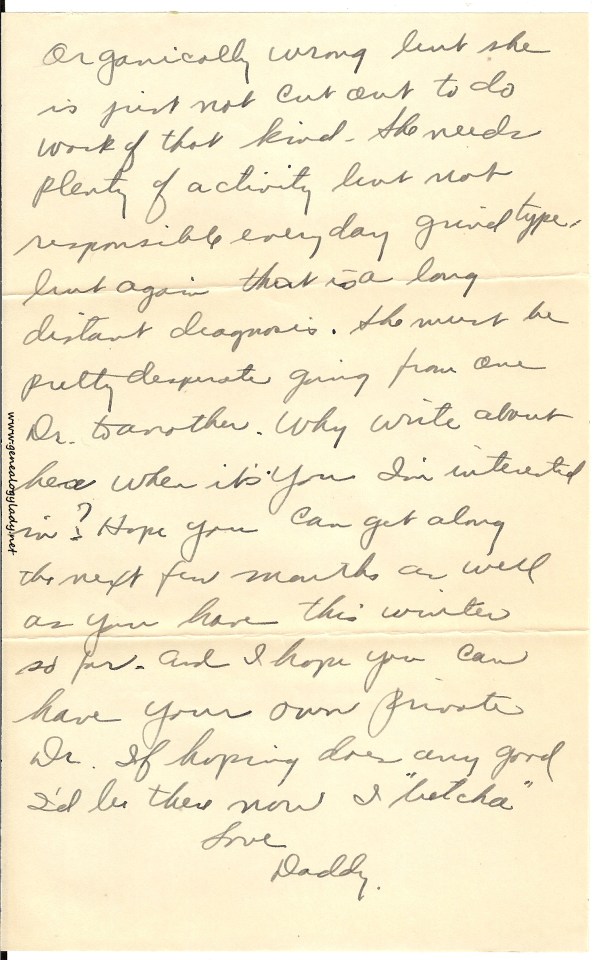 Organically wrong but she
is just not cut out to do
work of that kind. She needs
plenty of activity but not
responsible everyday grind type.
but again that is a long
distant diagnosis. She must be
pretty desperate going from one
Dr. to another. Why write about
her when it's You I'm interested
in? Hope you can get along
the next few months as well
as you have this winter
so far. And I hope you can
have your own private
Dr. If hoping does any good
I'd be there now I "betcha"
Love
Daddy.
www.genealogylady.net